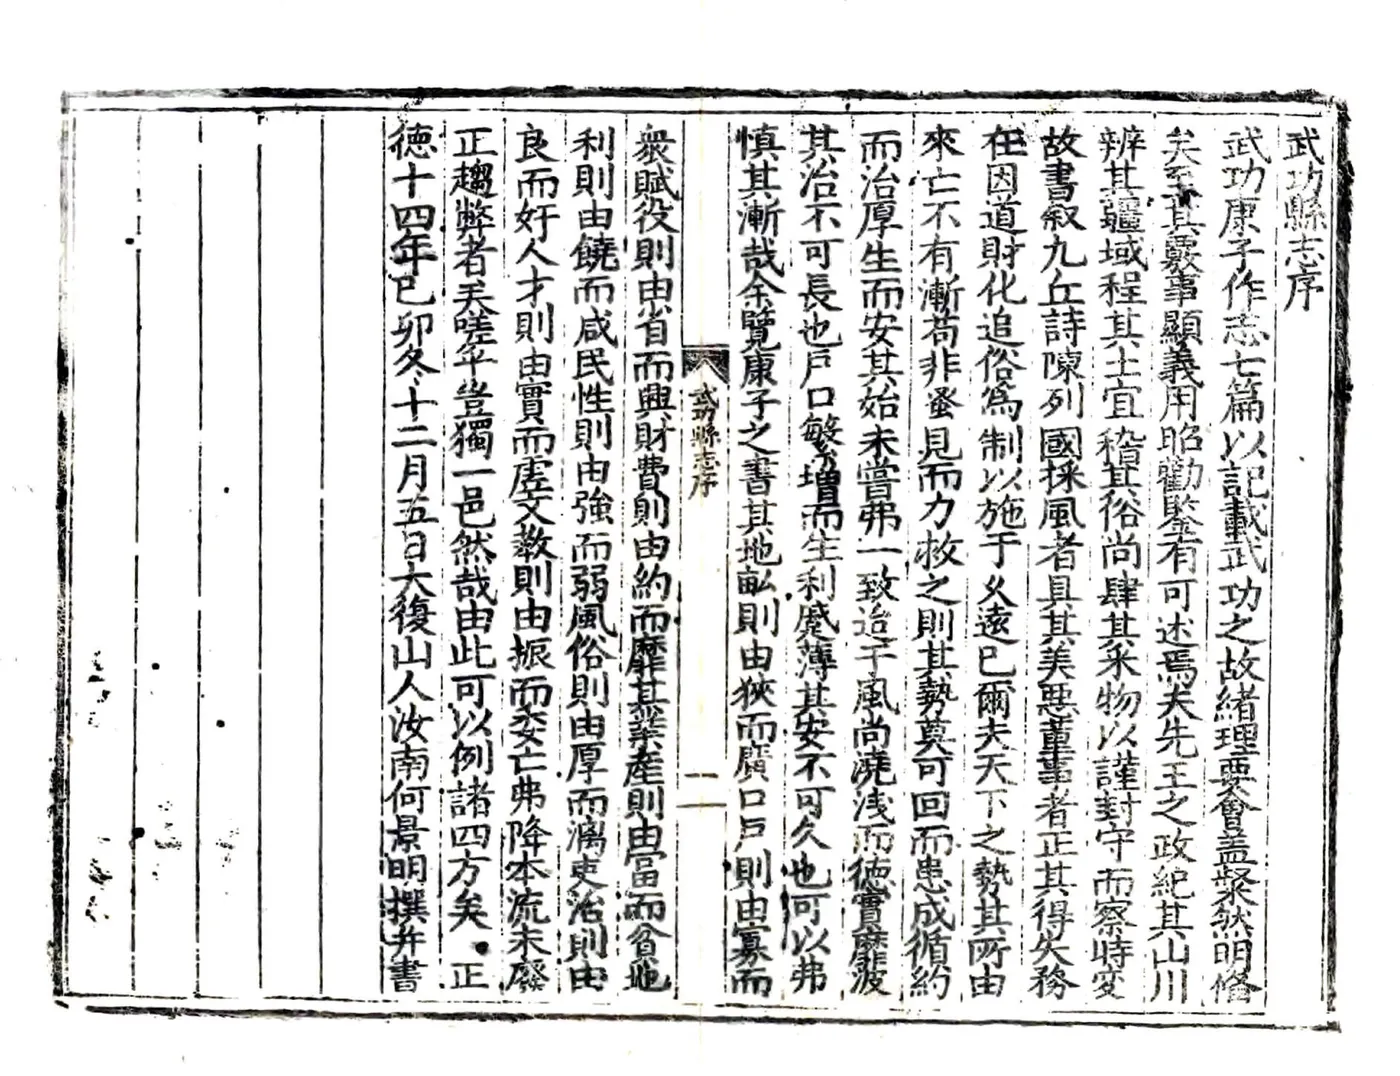 武功縣志序
武功康子作志七篇以記載武功之故緒理要會蓋粲然明僃
矣至其覈事顯義用昭勸鑒有可述焉夫先王之政紀其山川
辨其疆域程其土宜稽其俗尚肆其釆物以謹封守而察時变
故書叙九丘詩陳列國採風者具其美惡董事者正其得失務
在因道財化追俗爲制以施于乆遠巳爾夫天下之勢其所由
來亡不有漸苟非蚤見而力救之則其勢莫可回而患成循約
而治厚生而安其始未嘗弗一致迨于風尚澆浅而徳實靡波
其治不可長也戶口繁增而生利䠞薄其安不可久也可以弗
慎其漸哉余覽康子之書其地畝則由狹而廣口戶則由寡而
武功縣志序
一
衆賦役則由省而興財費則由約而靡其業產則由富而貧地
利則由饒而咸民性則由強而弱風俗則由厚而漓吏治則由
良而奸人才則由實而虚文教則由振而委亡弗降本流末廢
正趨弊者矣嗟乎豈獨一邑然哉由此可以例諸四方矣正
徳十四年巳卯冬十二月五日大復山人汝南何景明撰并書